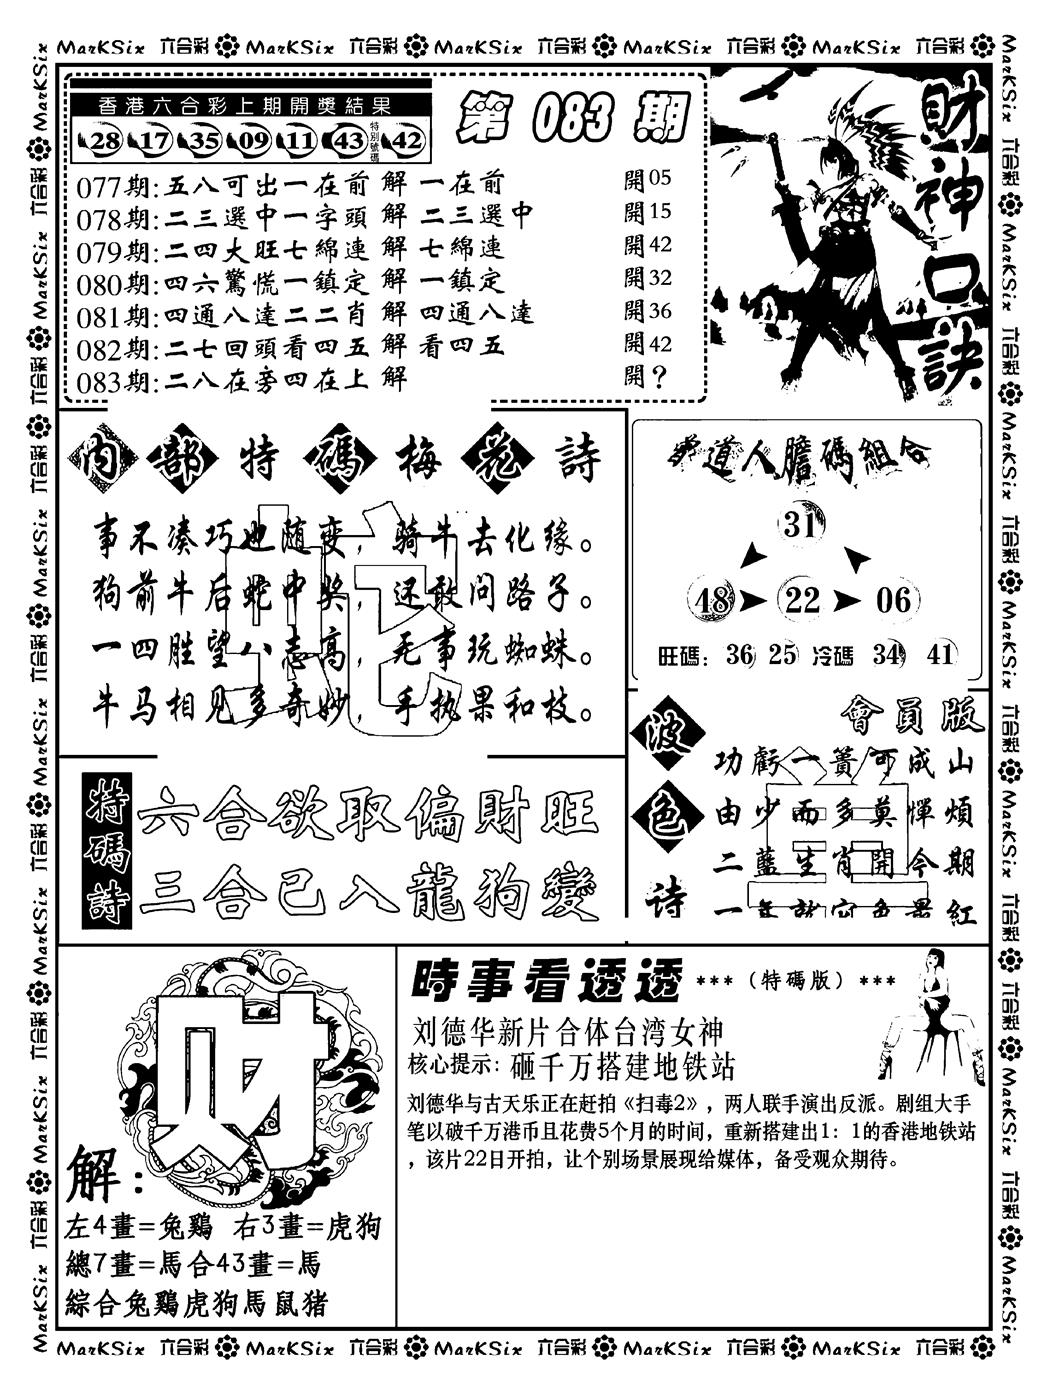 MarKSix 六合彩 MarKSix 六合彩 MarKSix 六合彩 MarKSix 六合彩 MarKSix 六合彩
香港六合彩上期開獎結果
28 17 35 09 11 43 特別號碼 42
第 083 期
077期:五八可出一在前 解 一在前 開05
078期:二三選中一字頭 解 二三選中 開15
079期:二四大旺七綿連 解 七綿連 開42
080期:四六驚慌一鎮定 解 一鎮定 開32
081期:四通八達二二肖 解 四通八達 開36
082期:二七回頭看四五 解 看四五 開42
083期:二八在旁四在上 解 開?
財神口訣
内部特碼梅花詩
事不凑巧也随变，骑牛去化缘。
狗前牛后蛇中奖，还敢问路子。
一四胜望八志高，无事玩蜘蛛。
牛马相见多奇妙，手执果和枝。
蛇
道人膽碼組合
31
48 22 06
旺碼: 36 25 冷碼 34 41
波色诗
會員版
功虧一簣可成山
由少而多莫憚煩
二藍生肖開今期
一年就定色果紅
特碼詩
六合欲取偏財旺
三合已入龍狗變
财
解:
左4畫=兔鷄 右3畫=虎狗
總7畫=馬合43畫=馬
綜合兔鷄虎狗馬鼠猪
時事看透透 ***（特碼版）***
刘德华新片合体台湾女神
核心提示: 砸千万搭建地铁站
刘德华与古天乐正在赶拍《扫毒2》，两人联手演出反派。剧组大手
笔以破千万港币且花费5个月的时间，重新搭建出1：1的香港地铁站
，该片22日开拍，让个别场景展现给媒体，备受观众期待。
MarKSix 六合彩 MarKSix 六合彩 MarKSix 六合彩 MarKSix 六合彩 MarKSix 六合彩